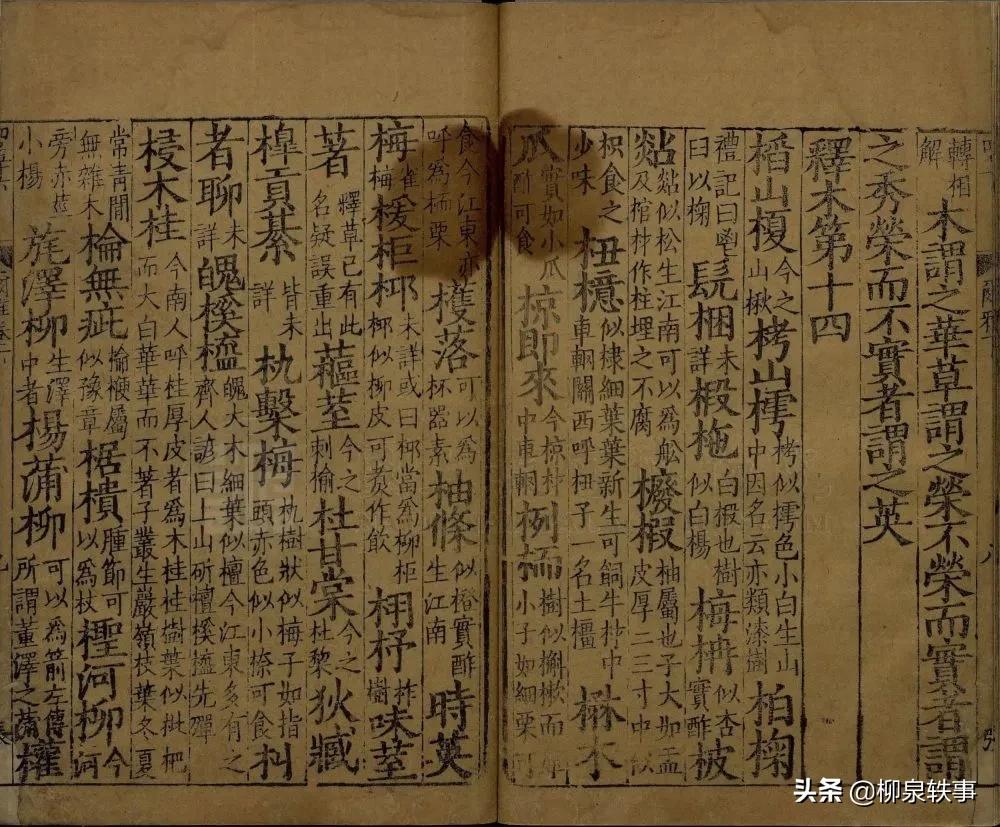 轉相解木謂之華草謂之榮不榮而實者謂
之秀榮而不實者謂之英
釋木第十四
槄山榎今之山楸栲山樗栲似樗色小白生山中因名云亦類漆樹柏椈
禮記曰鬯臼以椈髡梱未詳椴柂白椴也樹似白楊梅柟似杏實酢柀
煔煔似松生江南可以爲舩及棺材作柱埋之不腐櫠椵柚屬也子大如盂皮厚二三寸中似
枳食之少味杻檍似棣細葉葉新生可飼牛材中車輞關西呼杻子一名土橿楙木
瓜實如小瓜酢可食椋即來今椋材中車輞栵栭樹似槲樕而庳小子如細栗可
食今江東亦呼爲栭栗檴落可以爲杯器素柚條似橙實酢生江南時英
梅雀梅楥柜桏未詳或曰桏當爲柳柜桏似柳皮可煑作飲栩杼柞樹味荎
著釋草已有此名疑誤重出藲荎今之刺榆杜甘棠今之杜黎狄臧
槹貢綦皆未詳朹檕梅朹樹狀似梅子如指頭赤色似小㮈可食朻
者聊未詳魄榽橀魄大木細葉似檀今江東多有之齊人諺曰上山斫檀榽橀先殫
梫木桂今南人呼桂厚皮者爲木桂桂樹葉似枇杷而大白華華而不著子叢生巖嶺枝葉冬夏
常青間無雜木棆無疵棆楩屬似豫章椐樻腫節可以爲杖檉河柳今河
旁赤莖小楊旄澤柳生澤中者楊蒲柳可以爲箭左傳所謂董澤之蒲權
头条 @柳泉轶事